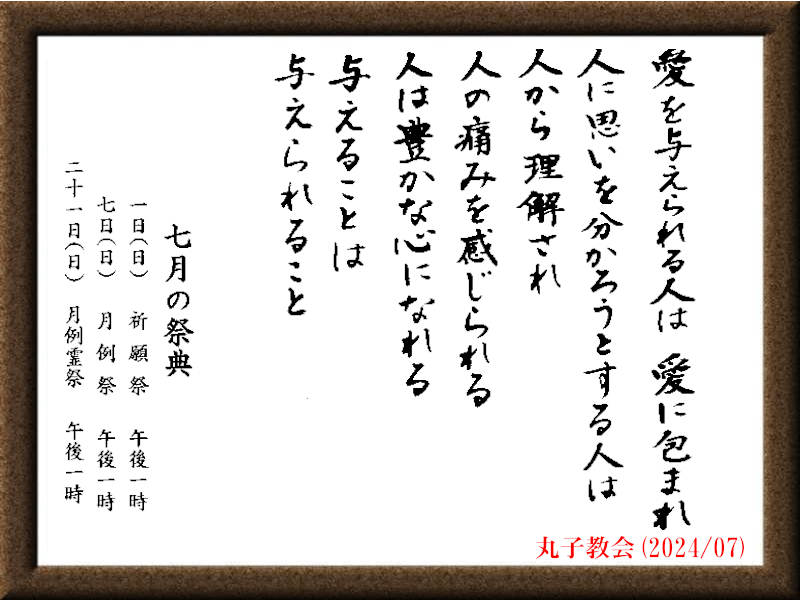 愛を与えられる人は 愛に包まれ
人に思いを分かろうとする人は
人から理解され
人の痛みを感じられる
人は豊かな心になれる
与えることは
与えられること
七月の祭典
一日(日) 祈願祭 午後一時
七日(日) 月例祭 午後一時
二十一日(日) 月例霊祭 午後一時
丸子教会(2024/07)